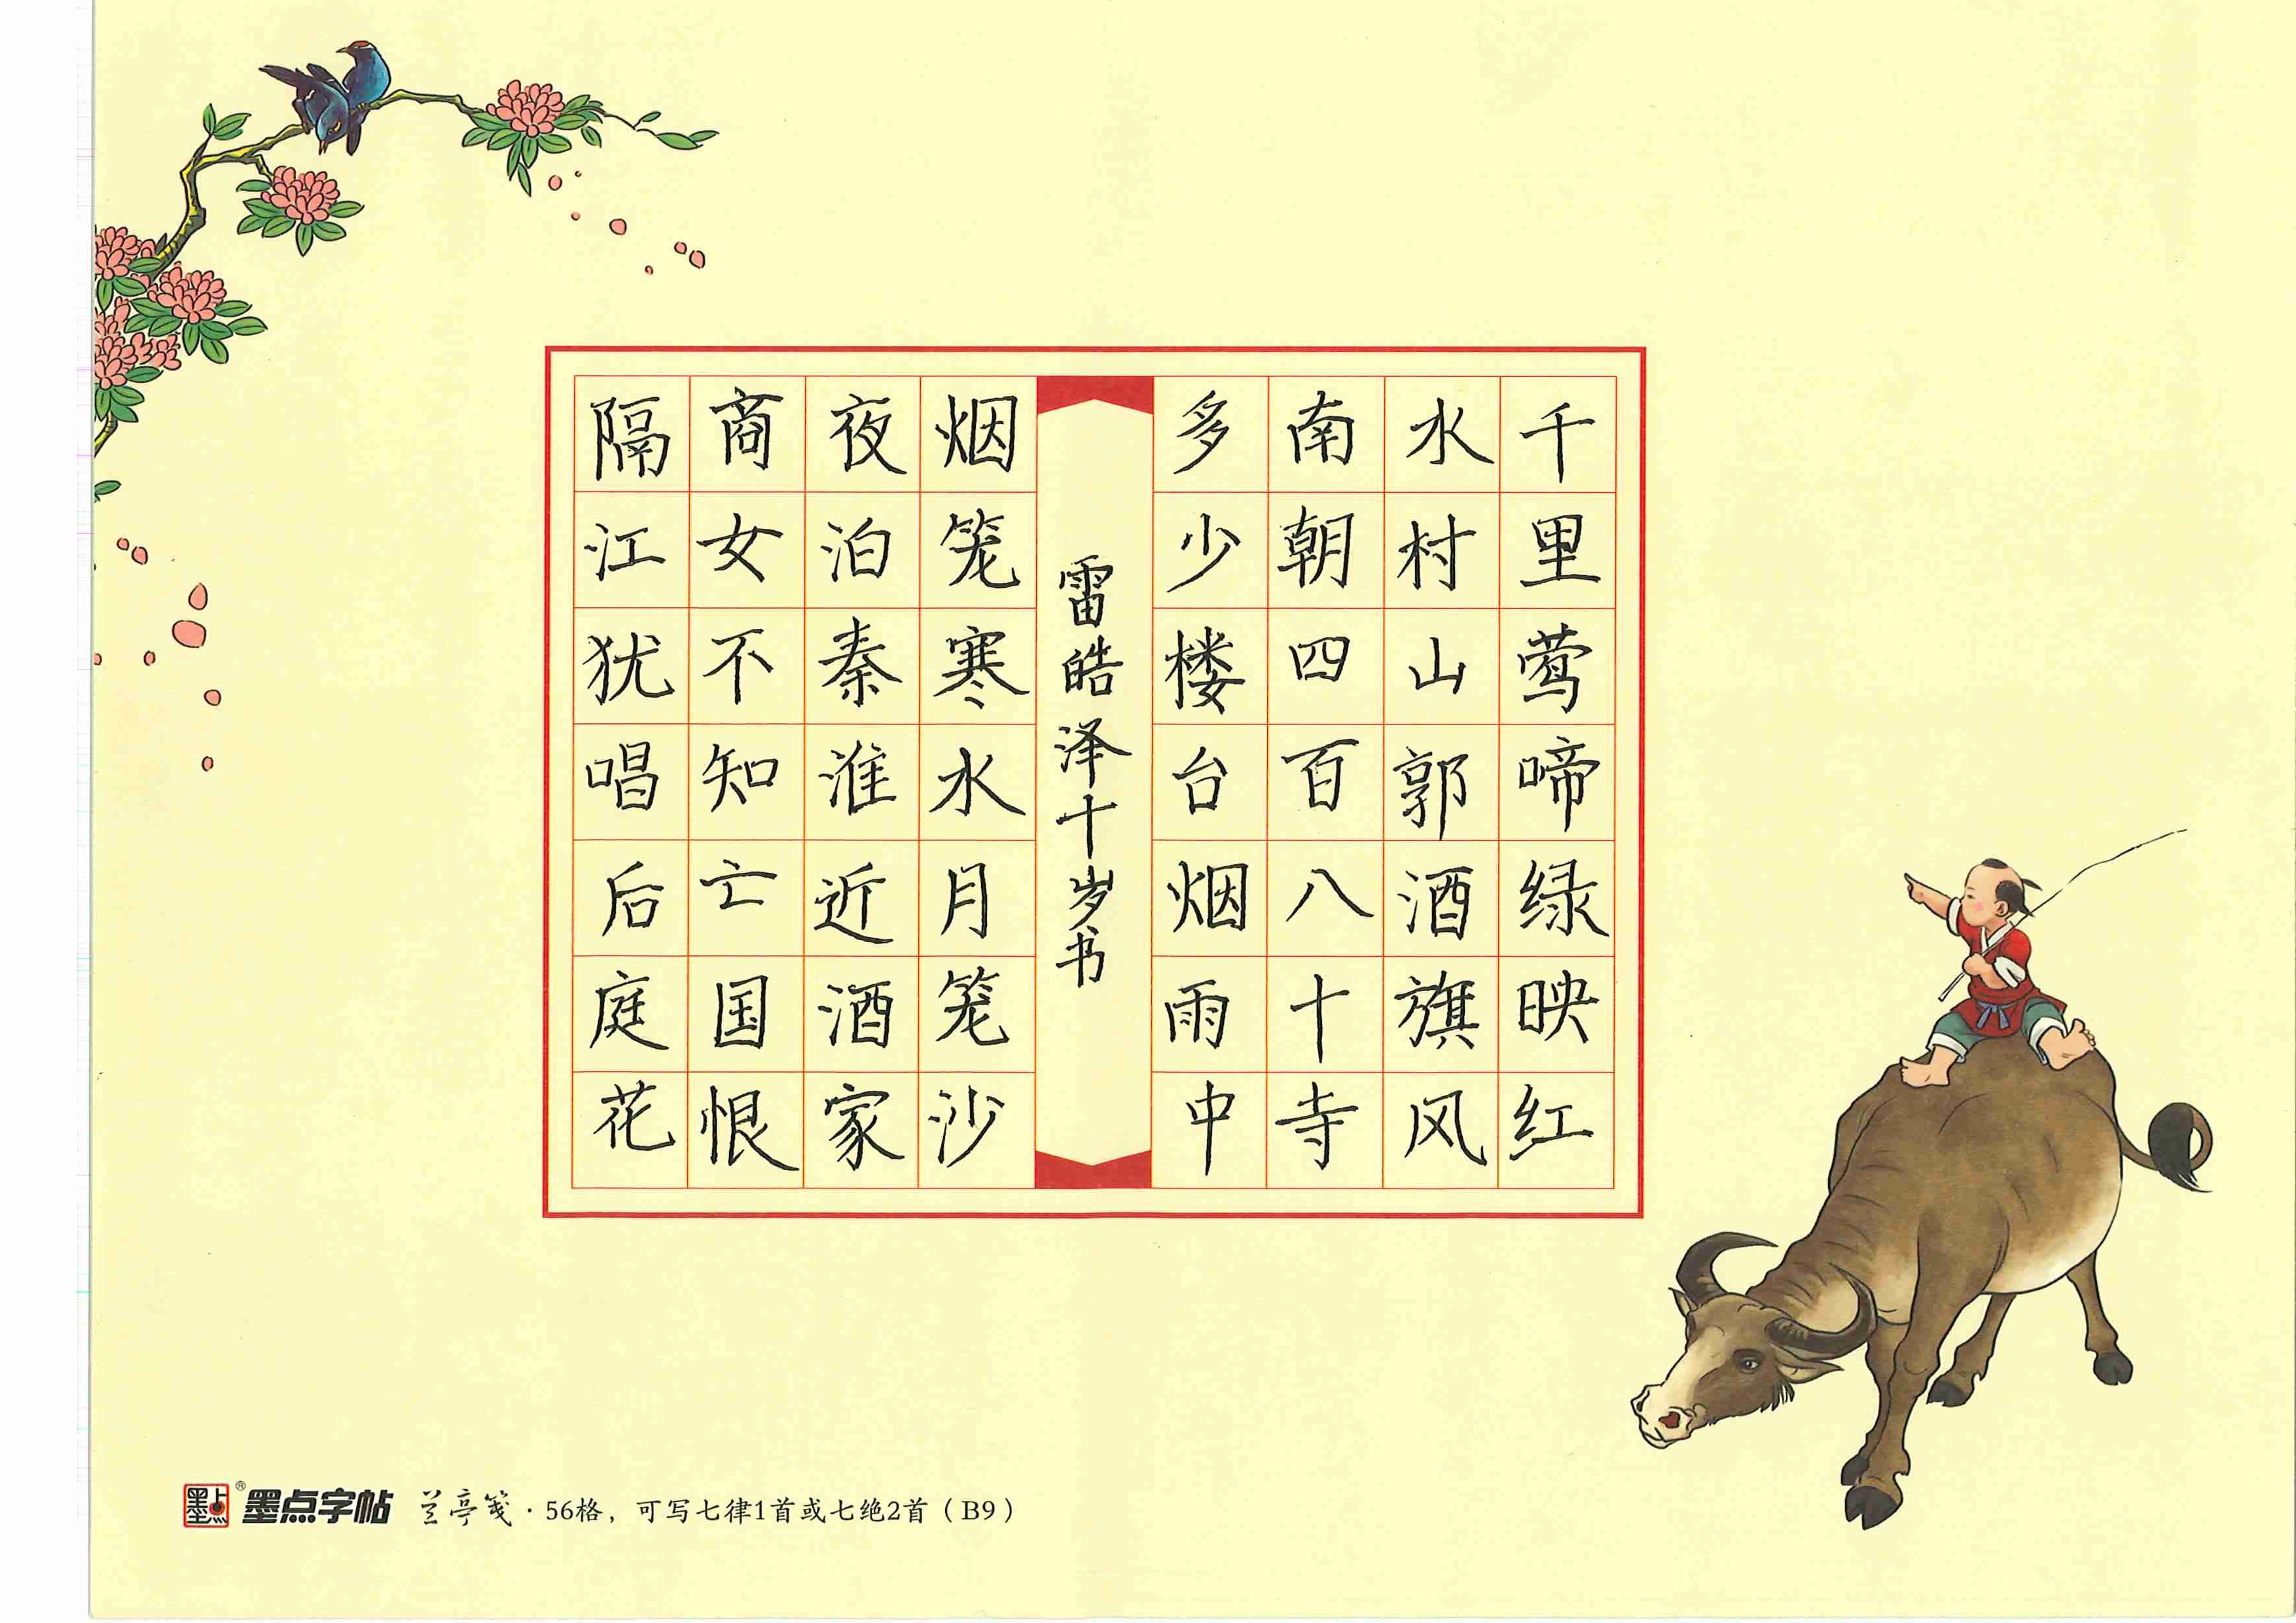 千里莺啼绿映红
水村山郭酒旗风
南朝四百八十寺
多少楼台烟雨中
雷皓泽十岁书
烟笼寒水月笼沙
夜泊秦淮近酒家
商女不知亡国恨
隔江犹唱后庭花
墨点® 墨点字帖 兰亭笺·56格，可写七律1首或七绝2首（B9）